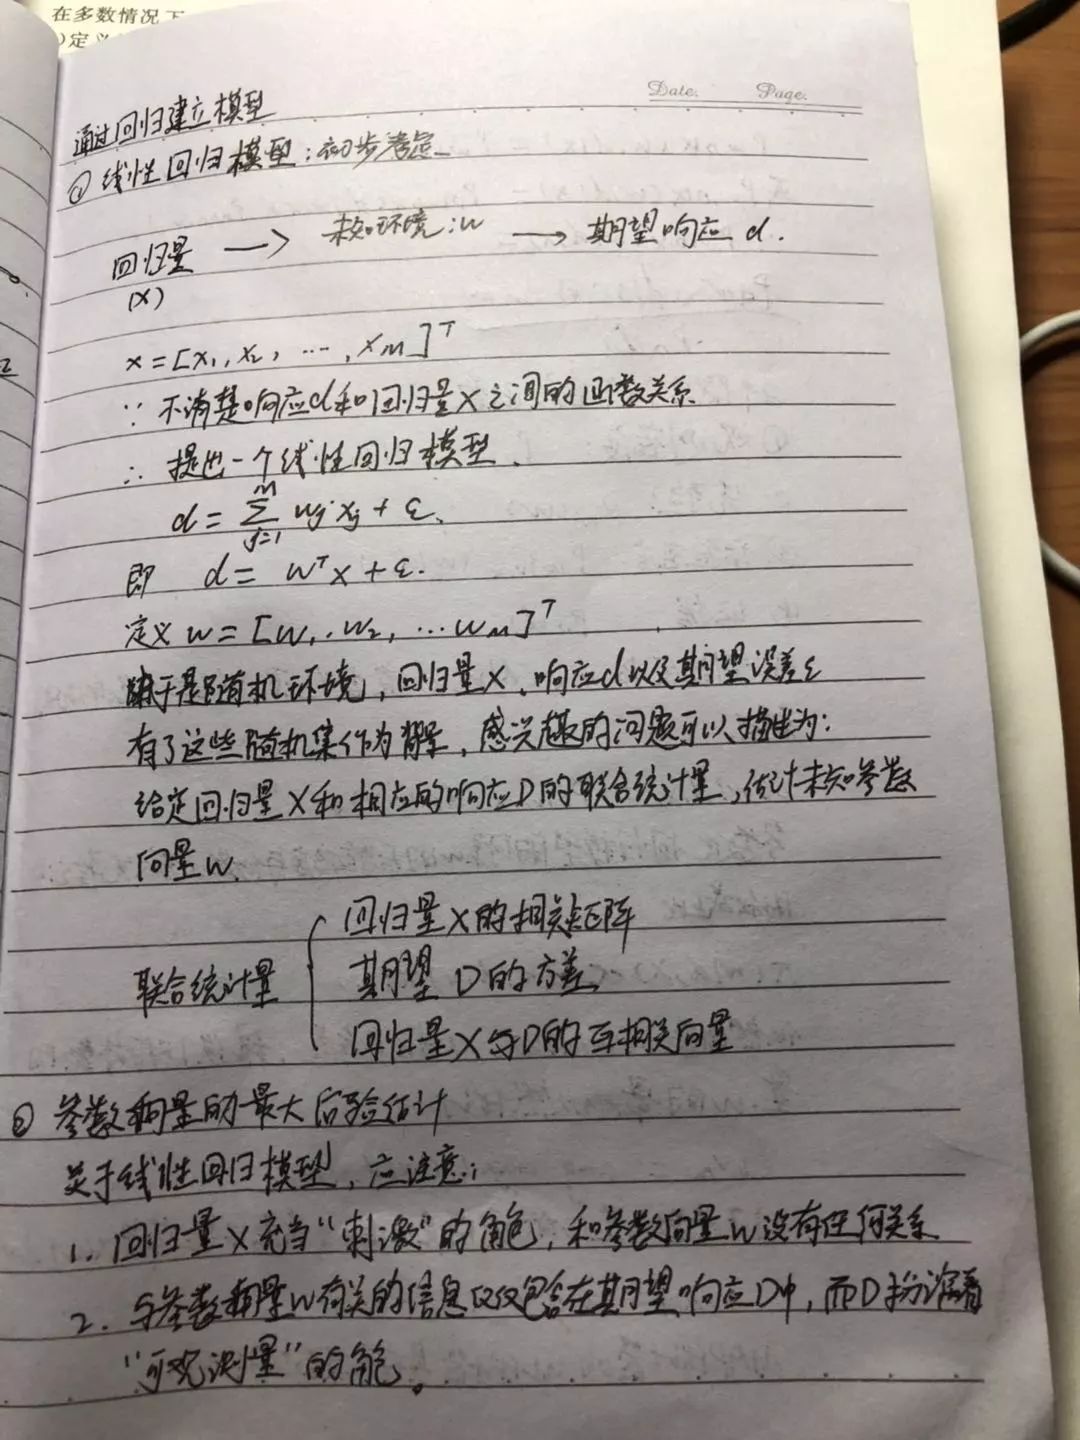 在多数情况下
)定义
Date. Page.
通过回归建立模型
① 线性回归模型:初步考虑
回归量 → 未知环境:w → 期望响应 d.
(X)
x = [x₁, x₂, ..., x_M]ᵀ
∵ 不清楚响应d和回归量X之间的函数关系
∴ 提出一个线性回归模型.
d = \sum_{j=1}^{M} w_j x_j + ε.
即 d = wᵀx + ε.
定义 w = [w₁, w₂, ... w_M]ᵀ
由于是随机环境,回归量X、响应d以及期望误差ε
有了这些随机集作为背景,感兴趣的问题可以描述为:
给定回归量X和相应的响应D的联合统计量,估计未知参数
向量w.
联合统计量 {
回归量X的相关矩阵
期望D的方差
回归量X与D的互相关向量
② 参数向量的最大后验估计
关于线性回归模型,应注意:
1. 回归量X充当“刺激”的角色,和参数向量w没有任何关系
2. 与参数向量w有关的信息仅仅包含在期望响应D中,而D扮演着
“可观测量”的角色。